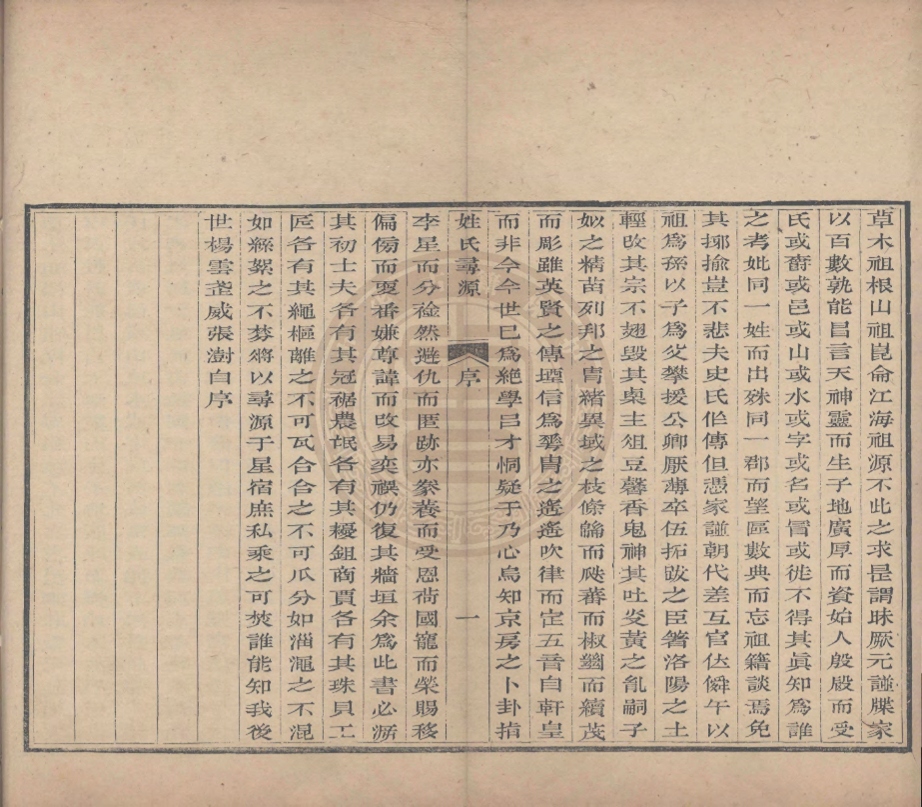 草木祖根山祖崑侖江海祖源不此之求是謂昧厥元譜牒家
以百數孰能昌言天神靈而生子地廣厚而資始人殷殷而受
氏或爵或邑或山或水或字或名或冒或徙不得其眞知爲誰
之考妣同一姓而出殊同一郡而望區數典而忘祖籍談焉免
其揶揄豈不悲夫史氏作傳但憑家譜朝代差互官伐僢午以
祖爲孫以子爲父攀援公卿厭薄卒伍拓跋之臣箸洛陽之土
輕改其宗不翅毀其桌主俎豆馨香鬼神其吐炎黃之胤嗣子
姒之精苗列邦之胄緒異域之枝條鷸而飈蕃而椒蘜而續茂
而彫雖英賢之傳堙信爲甹胄之遙遙吹律而定五音自軒皇
而非今今世已爲絶學呂才恫疑于乃心烏知京房之卜卦指
姓氏尋源 序 一
李星而分徻然避仇而匿跡亦豢養而受恩荷國寵而榮賜移
偏傍而叓番嫌尊諱而改易奕禩仍復其牆垣余爲此書必泝
其初士夫各有其冠裾農氓各有其耰鉏商賈各有其珠貝工
匠各有其繩樞離之不可瓦合合之不可瓜分如淄澠之不混
如絲絮之不棼將以尋源于星宿庶私乘之可焚誰能知我後
世楊雲𡐦威張澍自序